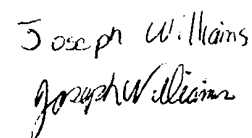 Joseph Williams
Joseph Williams